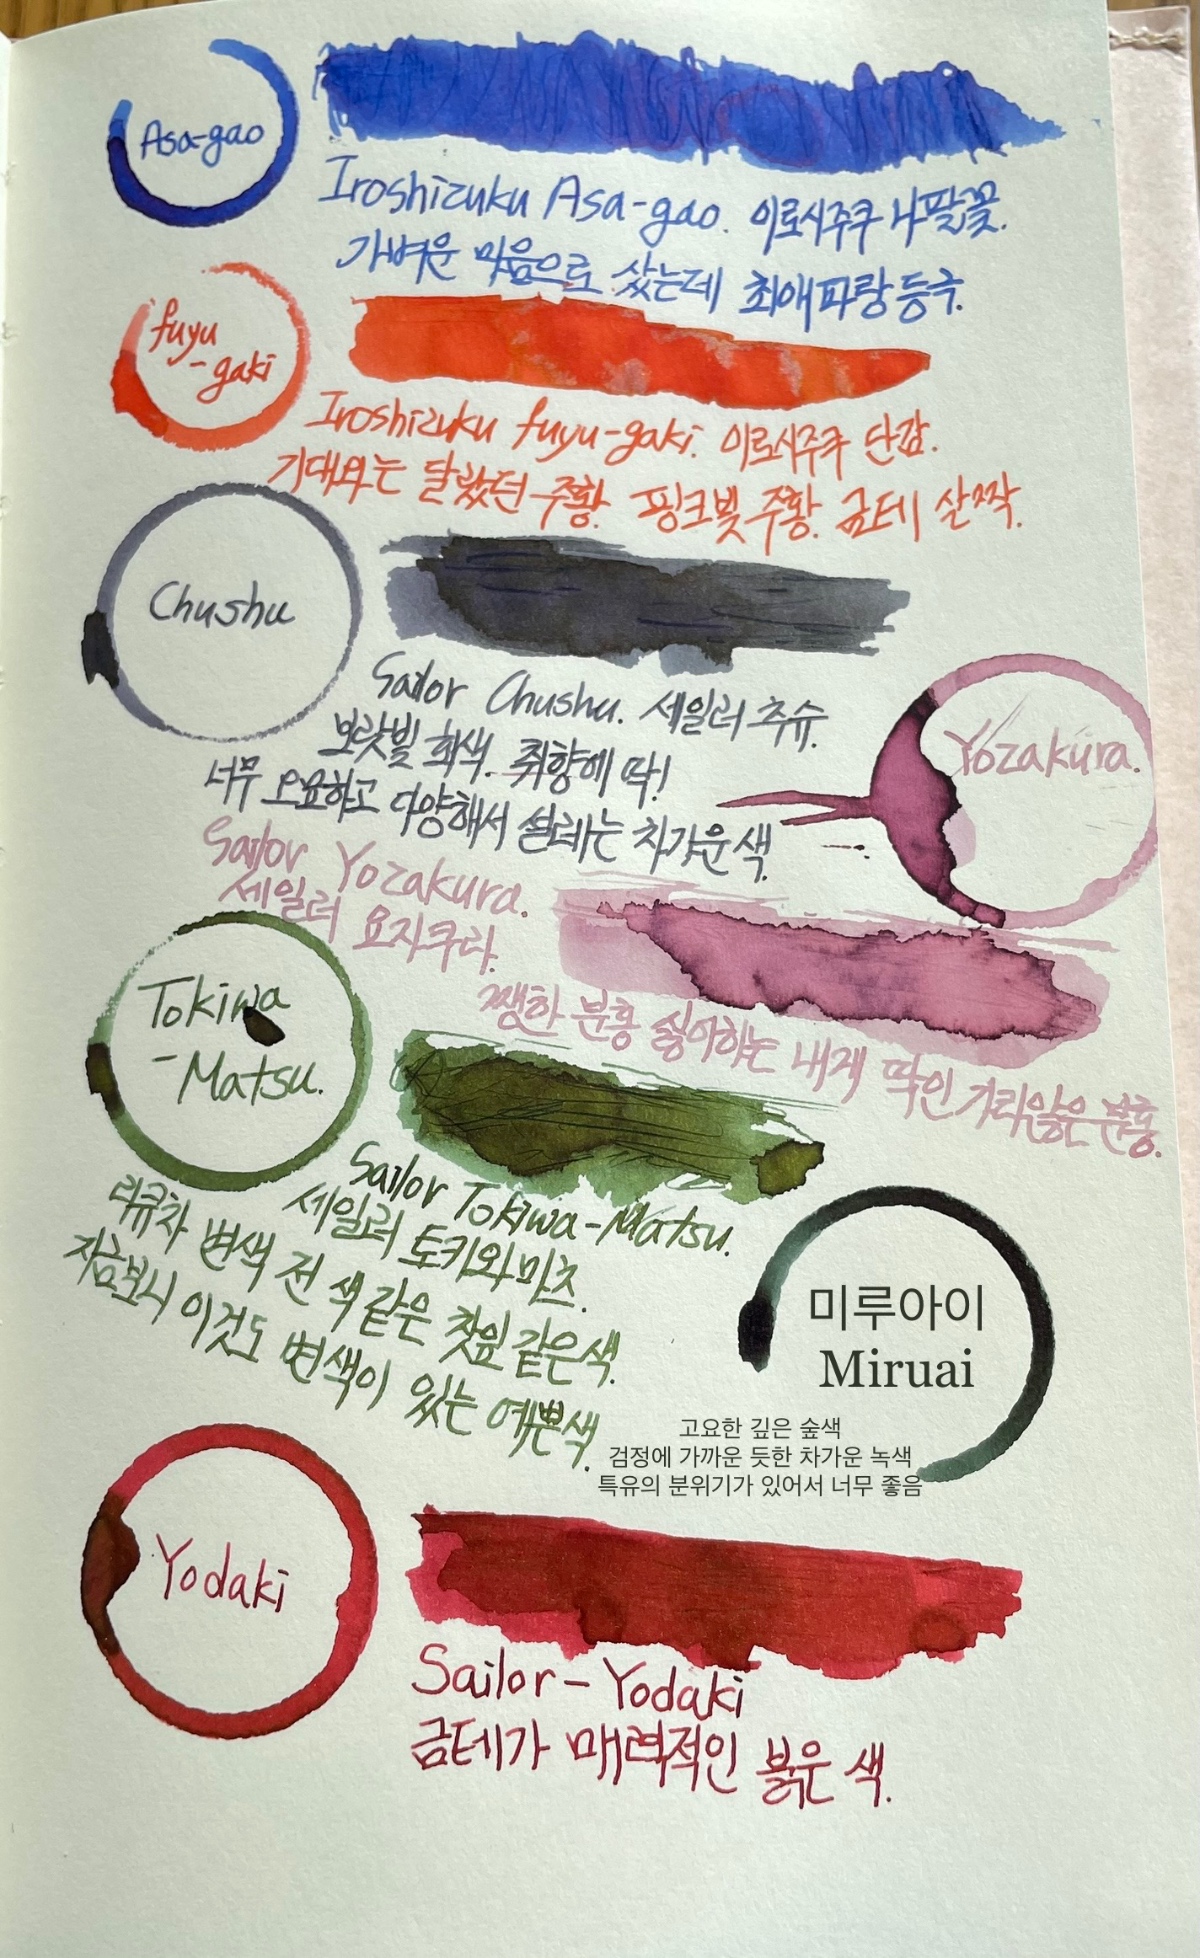 Asa-gao
Iroshizuku Asa-gao. 이로시주쿠 나팔꽃.
가벼운 마음으로 샀는데 최애파랑등극.
fuyu
-gaki
Iroshizuku fuyu-gaki. 이로시주쿠 단감.
기대와는 달랐던 주황. 핑크빛 주황. 금테 살짝.
Chushu
Sailor Chushu. 세일러 추슈.
보랏빛 회색. 취향에 딱!
너무 오묘하고 다양해서 설레는 차가운 색.
Yozakura.
Sailor Yozakura.
세일러 요자쿠라.
쨍한 분홍 싫어하는 내게 딱인 가라앉은 분홍.
Tokiwa
-Matsu.
Sailor Tokiwa-Matsu.
세일러 토키와마츠.
리큐차 변색 전 색 같은 찻잎 같은 색.
지금보니 이것도 변색이 있는 예쁜색.
미루아이
Miruai
고요한 깊은 숲색
검정에 가까운 듯한 차가운 녹색
특유의 분위기가 있어서 너무 좋음
Yodaki
Sailor-Yodaki
금테가 매력적인 붉은 색.